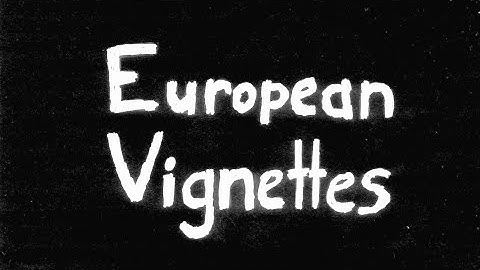 European
Vignettes